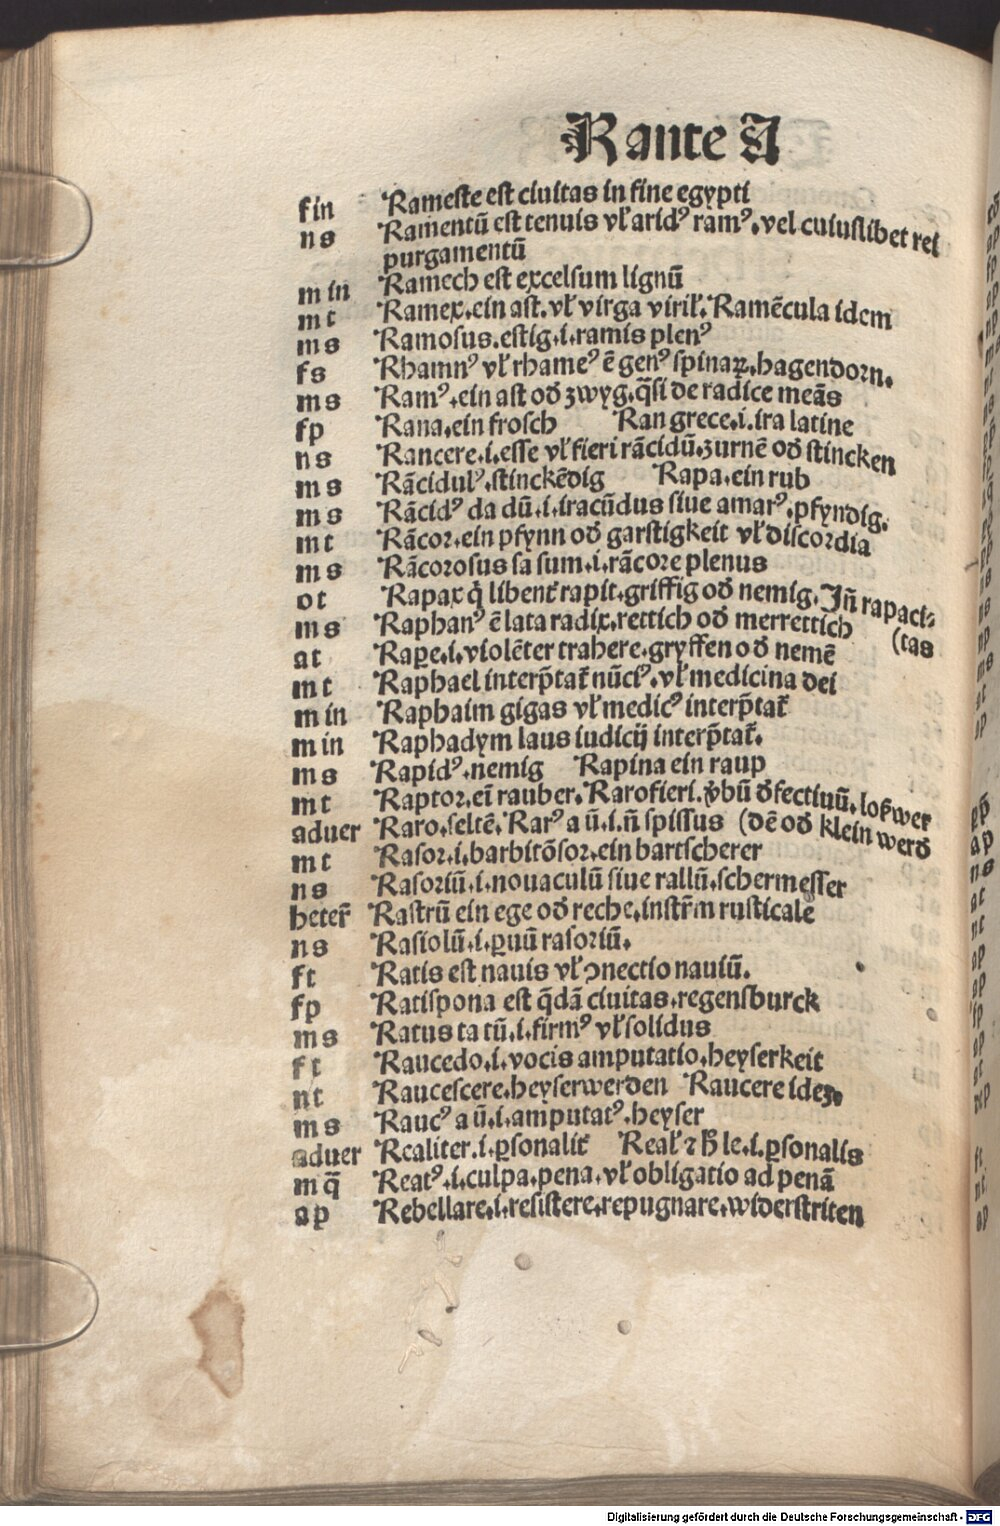 R ante A
fin Rameste est ciuitas in fine egypti
ns Ramentū est tenuis vł aridꝰ ramꝰ. vel cuiuslibet rei
purgamentū
min Ramech est excelsum lignū
mt Ramex. ein ast. vł virga viril̄. Ramēcula idem
ms Ramosus. estig. i. ramis plenꝰ
fs Rhamnꝰ vł rhameꝰ ē genꝰ spinaꝝ. hagendorn.
ms Ramꝰ. ein ast od̄ zwyg. q̄si de radice meās
fp Rana. ein frosch Ran grece. i. ira latine
ns Rancere. i. esse vł fieri rācidū. zurnē od̄ stincken
ms Rācidulꝰ. stinckēdig Rapa. ein rub
ms Rācidꝰ da dū. i. iracūdus siue amarꝰ. pfyndig.
mt Rācor. ein pfynn od̄ garstigkeit vł discordia
ms Rācorosus sa sum. i. rācore plenus
ot Rapax q̇ libent̄ rapit. griffig od̄ nemig. Jn̄ rapaci⸗
ms Raphanꝰ ē lata radix. rettich od̄ merrettich (tas
at Rape. i. violēter trahere. gryffen od̄ nemē
mt Raphael interp̄tat̄ nūciꝰ. vł medicina dei
min Raphaim gigas vł medicꝰ interp̄tat̄
min Raphadym laus iudicij interp̄tat̄.
ms Rapidꝰ. nemig Rapina ein raup
mt Raptor. eī rauber. Rarofieri. v̄bū d̄fectiuū. loß wer
aduer Raro. seltē. Rarꝰ a ū. i. n̄ spissus (dē od̄ klein werd̄
mt Rasor. i. barbitōsor. ein bartscherer
ns Rasoriū. i. nouaculū siue rallū. schermesser
heter̄ Rastrū ein ege od̄ reche. instr̄m rusticale
ns Rasiolū. i. ꝑuū rasoriū.
ft Ratis est nauis vł ꝯnectio nauiū.
fp Ratispona est q̄dā ciuitas. regensburck
ms Ratus ta tū. i. firmꝰ vł solidus
ft Raucedo. i. vocis amputatio. heyserkeit
nt Raucescere. heyserwerden Raucere ideꝫ
ms Raucꝰ a ū. i. amputatꝰ. heyser
aduer Realiter. i. ꝑsonalit̄ Realꝭ ⁊ h̄ le. i. ꝑsonalis
mq̄ Reatꝰ. i. culpa. pena. vł obligatio ad penā
ap Rebellare. i. resistere. repugnare. widerstriten
Digitalisierung gefördert durch die Deutsche Forschungsgemeinschaft - DFG